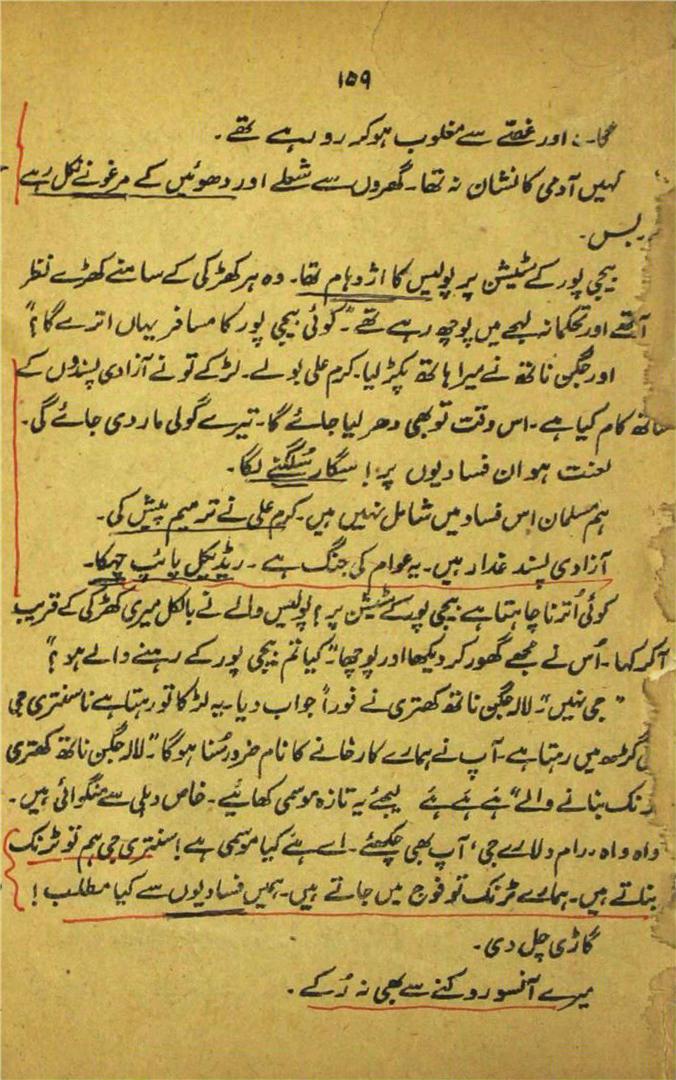 ۱۵۹
اور غصّے سے مغلوب ہو کر رو رہے تھے۔
کہیں آدمی کا نشان نہ تھا۔ گھروں سے شعلے اور دھوئیں کے مرغولے نکل رہے
بس۔
بیجی پور کے سٹیشن پر پولیس کا اژدہام تھا۔ وہ ہر کھڑکی کے سامنے کھڑے نظر
آتے اور تحکمانہ لہجے میں پوچھ رہے تھے "کوئی بیجی پور کا مسافر یہاں اترے گا؟"
اور جگن ناتھ نے میرا ہاتھ پکڑ لیا۔ کرم علی بولے۔ لڑکے تو نے آزادی پسندوں کے
ساتھ کام کیا ہے۔ اس وقت تو بھی دھر لیا جائے گا۔ تیرے گولی مار دی جائے گی۔
لعنت ہو ان فسادیوں پر! سگار سُلگنے لگا۔
ہم مسلمان اس فساد میں شامل نہیں ہیں۔ کرم علی نے ترمیم پیش کی۔
آزادی پسند غدار ہیں۔ یہ عوام کی جنگ ہے۔ ریڈیکل پائپ چہکا۔
کوئی اُترنا چاہتا ہے بیجی پور کے سٹیشن پر؟ پولیس والے نے بالکل میری کھڑکی کے قریب
آ کر کہا۔ اُس نے مجھے گھور کر دیکھا اور پوچھا "کیا تم بیجی پور کے رہنے والے ہو؟"
"جی نہیں"۔ لالہ جگن ناتھ کھتری نے فوراً جواب دیا۔ یہ لڑکا تو رہتا ہے نا سنتری جی
گڑھ میں رہتا ہے۔ آپ نے ہمارے کارخانے کا نام ضرور سُنا ہوگا "لالہ جگن ناتھ کھتری
ٹرنک بنانے والے" ہے ہے ہے لیجئے یہ تازہ موسمی کھائیے۔ خاص دہلی سے منگوائی ہیں۔
واہ واہ۔ رام دلارے جی، آپ بھی چکھئے۔ اے ہے کیا موسمی ہے! سنتری جی ہم تو ٹرنک
بناتے ہیں۔ ہمارے ٹرنک تو فوج میں جاتے ہیں۔ ہمیں فسادیوں سے کیا مطلب!
گاڑی چل دی۔
میرے آنسو روکنے سے بھی نہ رُکے۔